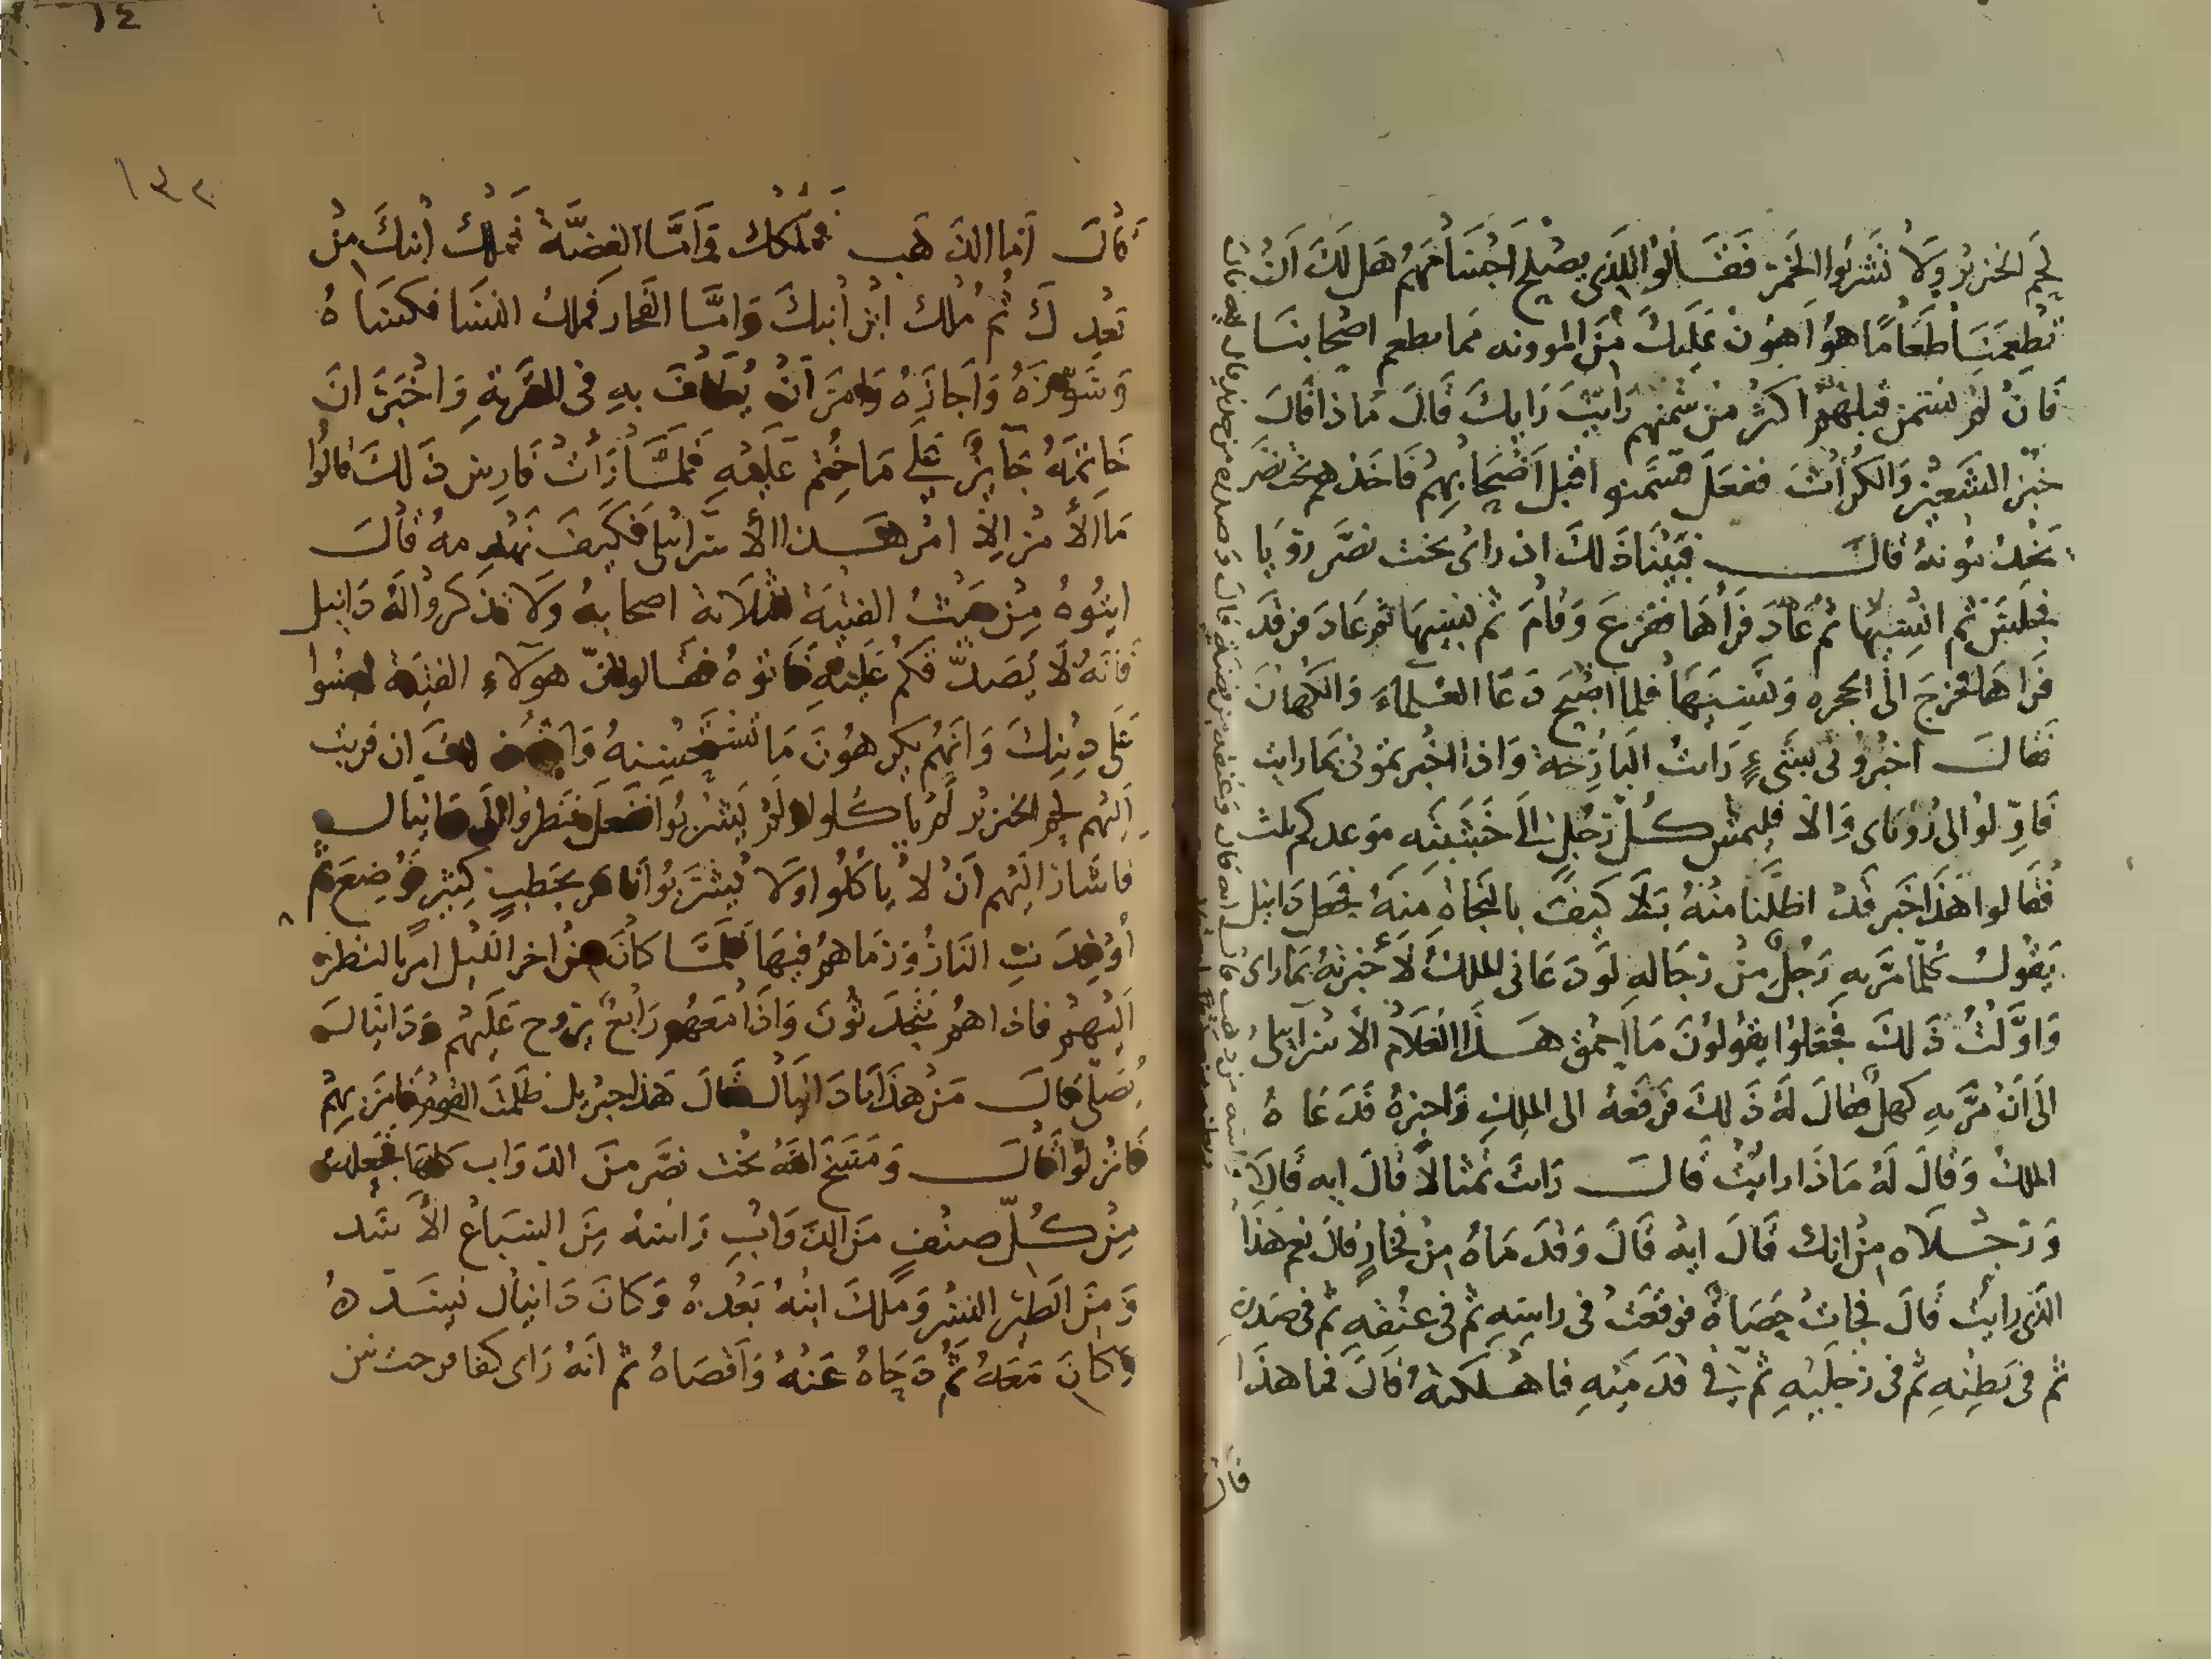 لحم الخنزير ولا نشربوا الخمر فقالوا للذي يصلح اجسامهم هل لك ان
تطعمنا طعاما هو اهون عليك من المؤونه مما تطعم اصحابنا
فان لم نسمن قبلهم اكثر من سمنهم رايت رايك قال ماذا قال
خبز الشعير والكراث ففعل فسمنو اقبل اصحابهم فاخذهم بخت نصر
يخدمونه قال فبينا ذلك اذ راى بخت نصر رويا
فجلس ثم انسيها ثم عاد فراها ففزع وقام ثم نسيها ثم عاد فرقد
فراها فخرج الى الحجره ونسيها فلما اصبح دعا العلماء والكهان
فقال اخبروني بشيء رايت البارحة واذا اخبرتموني بما رايت
فاولوا لي روياي والا فليمش كل رجل الى خشبته موعدكم ثلث
فقالوا هذا خبر قد اظلنا منه بلا كيف بالنجاه منه فجعل دانيل
يقول كلما مر به رجل من رجاله لو دعاني الملك لأخبرته بما راى
واولت ذلك فجعلوا يقولون ما احمق هذا الغلام الاسرآيلي
الى ان مر به كهل فقال له ذلك فرفعه الى الملك واخبره فدعاه
الملك وقال له ماذا رايت قال رايت تمثالا قال ايه قال
ورجلاه من انك قال ايه قال وقدماه من فخار قال نعم هذا
الذي رايت قال فجات حصاه فوقعت في راسه ثم في عنقه ثم في صدره
ثم في بطنه ثم في رجليه ثم في قدميه فاهلكته قال فما هذا
قال
١٤
١٣٢
قال اما الذهب فملكك واما الفضة فملك ابنك من
بعدك ثم ملك ابن ابنك واما الفخار فملك النسا فكساه
وسوره واجازه وامر ان يطاف به في القرية واخبر ان
خاتمه جايز على ما ختم عليه فلما رات فارس ذلك قالوا
ما الأمر الا امر هذا الاسرائيلي فكيف نهدمه قال
ايتوه من هذه الفتية الثلاثة اصحابه ولا تذكروا له دانيل
فانه لا يصدقكم عليه فاتوه فقالوا ان هولاء الفتية ليسوا
على دينك وانهم يكرهون ما تستحسنه واية ذلك ان قربت
اليهم لحم الخنزير لم ياكلوا ولم يشربوا ففعل فنظروا الى دانيال
فاشار اليهم ان لا ياكلوا ولا يشربوا فامر بحطب كثير فوضع ثم
اوقدت النار ورماهم فيها فلما كان من اخر الليل امر بالنظر
اليهم فاذا هم يتحدثون واذا معهم رابع يروح عليهم ودانيال
يصلي قال من هذا يا دانيال فقال هذا جبريل ظلمت القوم فامر بهم
فانزلوا قال ومسخ الله بخت نصر من الدواب كلها فجعلت
من كل صنف من الدواب راسه من السباع الأسد
ومن الطير النسر وملك ابنه بعده وكان دانيال يسدده
وكان معه ثم دجاه عنه واقصاه ثم انه راى كفا فرجت بين